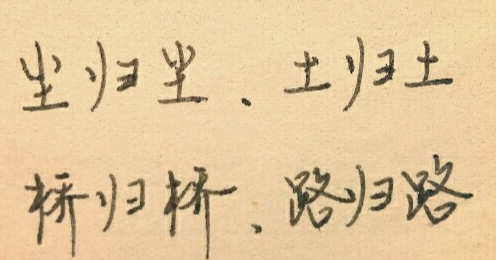 尘归尘、土归土
桥归桥、路归路